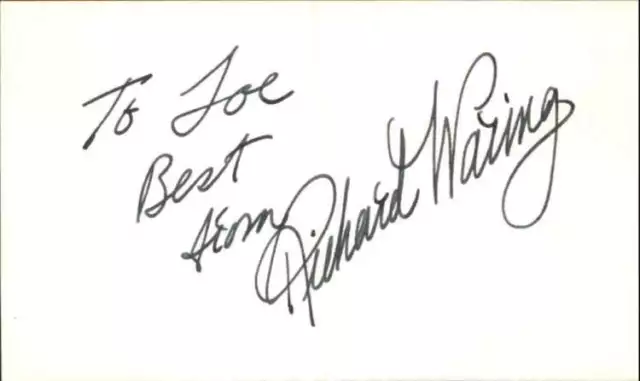 To Joe
Best
from
Richard Waring